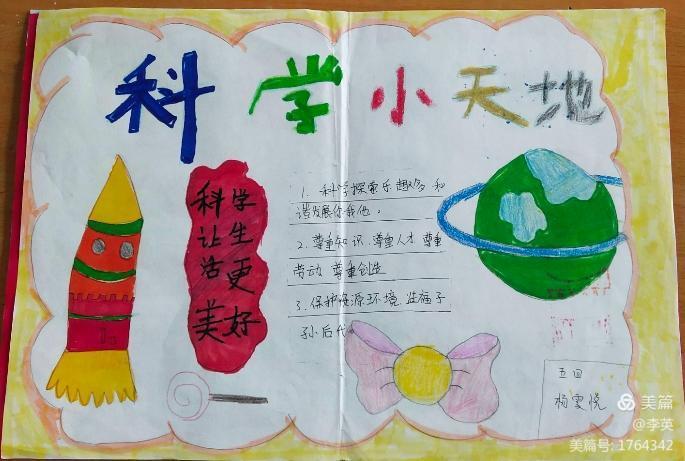 科学小天地
科学
让生
活更
美好
1. 科学探索乐趣多 和
谐发展你我他。
2. 尊重知识 尊重人才 尊重
劳动 尊重创造
3. 保护资源环境 造福子
孙后代
五四
杨雯悦
美篇
@李英
美篇号: 1764342